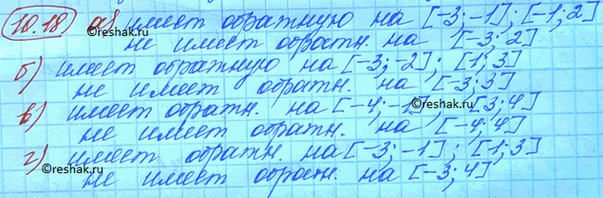 10.18) а) имеет обратную на [-3;-1]; [-1;2]
не имеет обратн. на [-3;2]
б) имеет обратную на [-3;-2]; [1;3]
не имеет обратн. на [-3;3]
в) имеет обратн. на [-4;-1]; [3;4]
не имеет обратн. на [-4;4]
г) имеет обратн. на [-3;-1]; [1;3]
не имеет обратн. на [-3;4]
©5terka.com
©5terka.com
©5terka.com